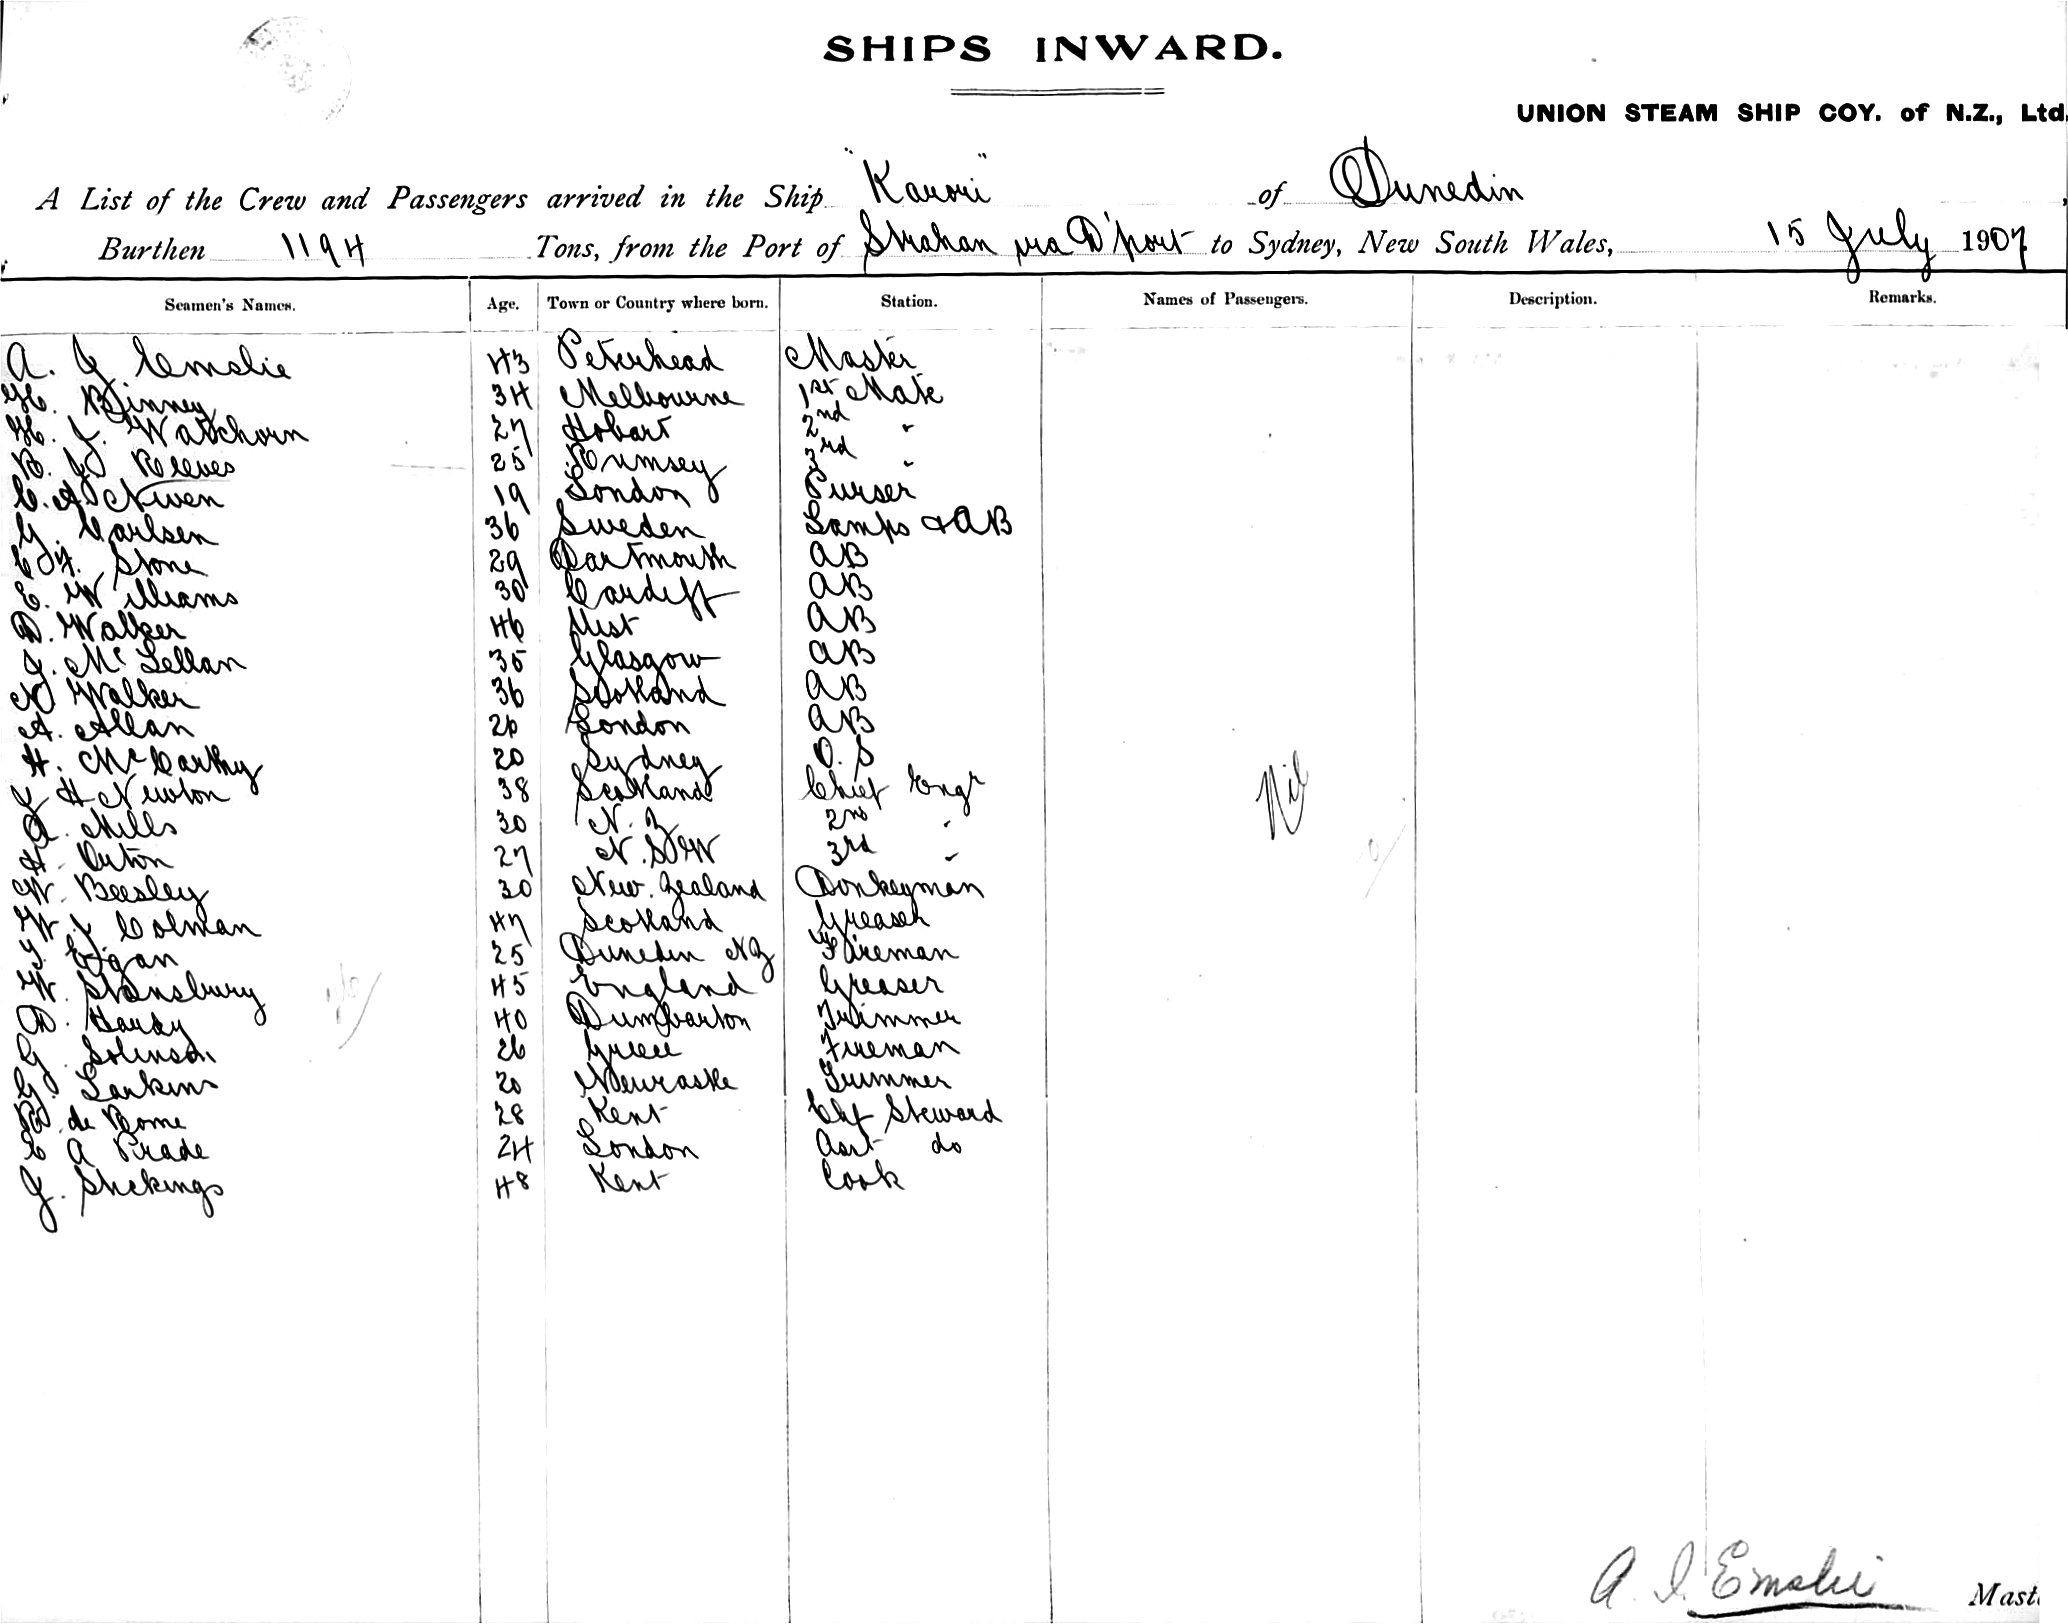 SHIPS INWARD.
UNION STEAM SHIP COY. of N.Z., Ltd.
A List of the Crew and Passengers arrived in the Ship "Karori" of Dunedin,
Burthen 1194 Tons, from the Port of Strahan via D'port to Sydney, New South Wales, 15 July 1907
Seamen's Names. Age. Town or Country where born. Station. Names of Passengers. Description. Remarks.
A. J. Emslie 43 Peterhead Master
H. Binney 34 Melbourne 1st Mate
H. J. Watchorn 27 Hobart 2nd "
B. Reeves 25 Rumsey 3rd "
C. A. Niven 19 London Purser
G. Carlsen 36 Sweden Lamps & AB
C. H. Stone 29 Dartmouth AB
E. Williams 30 Cardiff AB
D. Walker 46 Uist AB
J. McLellan 35 Glasgow AB
N Walker 36 Scotland AB
A. Allan London AB
H. McCarthy 20 Sydney O.S
J H Newton 38 Scotland Chief Engr
A. Mills 30 N.Z 2nd "
H. Orton 27 N.S.W 3rd "
W. Beesley 30 New Zealand Donkeyman
W. J. Colman 47 Scotland Greaser
Egan 25 Dunedin NZ Fireman
W. Stansbury 45 England Greaser
D. Hardy 40 Dumbarton Trimmer
G. 26 Greece Fireman
G. Larkins 20 Newcastle Trimmer
de Bome 28 Kent Chf Steward
C A Prade 24 London Asst do
J. Stickings 48 Kent Cook
Nil
A. J. Emslie Mast